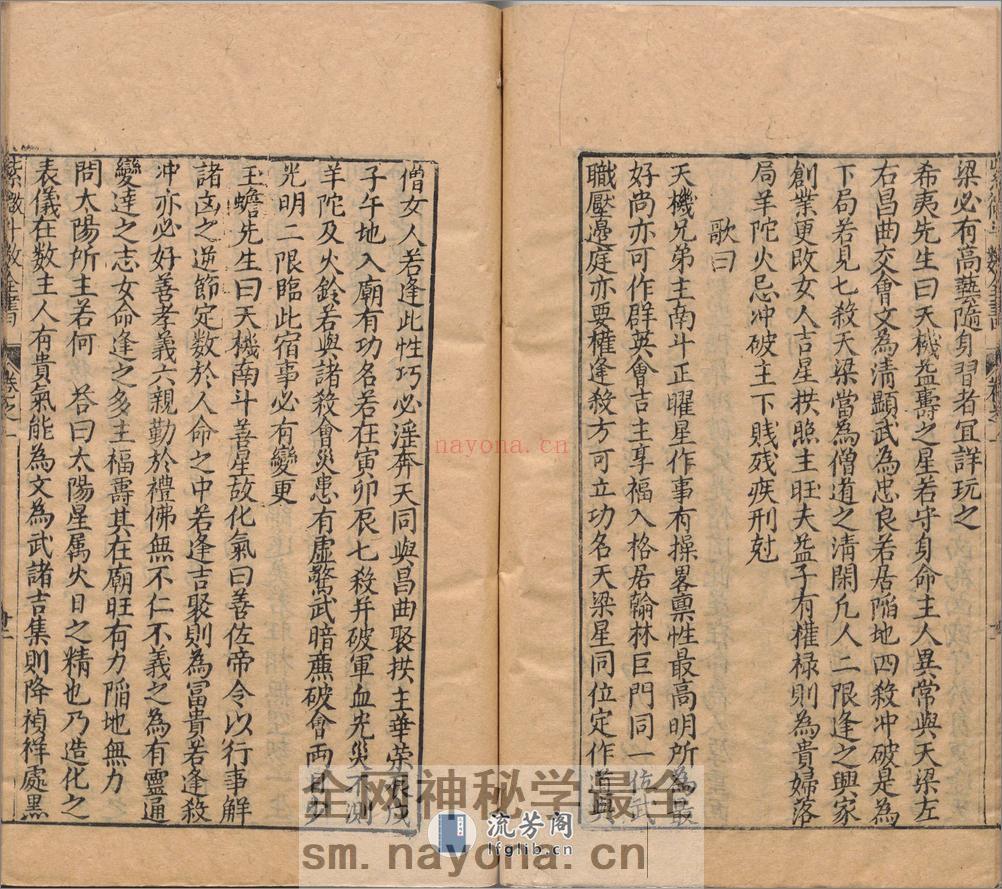 梁必有高藝隨身習者宜詳玩之
希夷先生曰天機益壽之星若守身命主人異常與天梁左
右昌曲交會文為清顯武為忠良若居陷地四殺冲破是為
下局若見七殺天梁當為僧道之清閑凡人二限逢之興家
創業更改女人吉星拱照主旺夫益子有權禄則為貴婦落
局羊陀火忌冲破主下賤残疾刑尅
歌曰
天機兄弟主南斗正曜星作事有操畧禀性最高明所為最
好尚亦可作群英會吉主享福入格居翰林巨門同一位武
職壓邊庭亦要權逢殺方可立功名天梁星同位定作道與
僧女人若逢此性巧必淫奔天同與昌曲聚拱主華荣辰戌
子午地入廟有功名若在寅卯辰七殺并破軍血光災不測
羊陀及火鈴若與諸殺會災患有虛驚武暗廉破會兩目少
光明二限臨此宿事必有變更
玉蟾先生曰天機南斗善星故化氣曰善佐帝令以行事解
諸凶之逆節定數於人命之中若逢吉聚則為冨貴若逢殺
冲亦必好善孝義六親勤於禮佛無不仁不義之為有靈通
變達之志女命逢之多主福壽其在廟旺有力陷地無力
問太陽所主若何 荅曰太陽星属火日之精也乃造化之
表儀在數主人有貴氣能為文為武諸吉集則降禎祥處黑
紫微斗数全書 卷之一
nayona.cn
全网神秘学最全
流芳阁
lfglib.cn
sm.nayona.cn